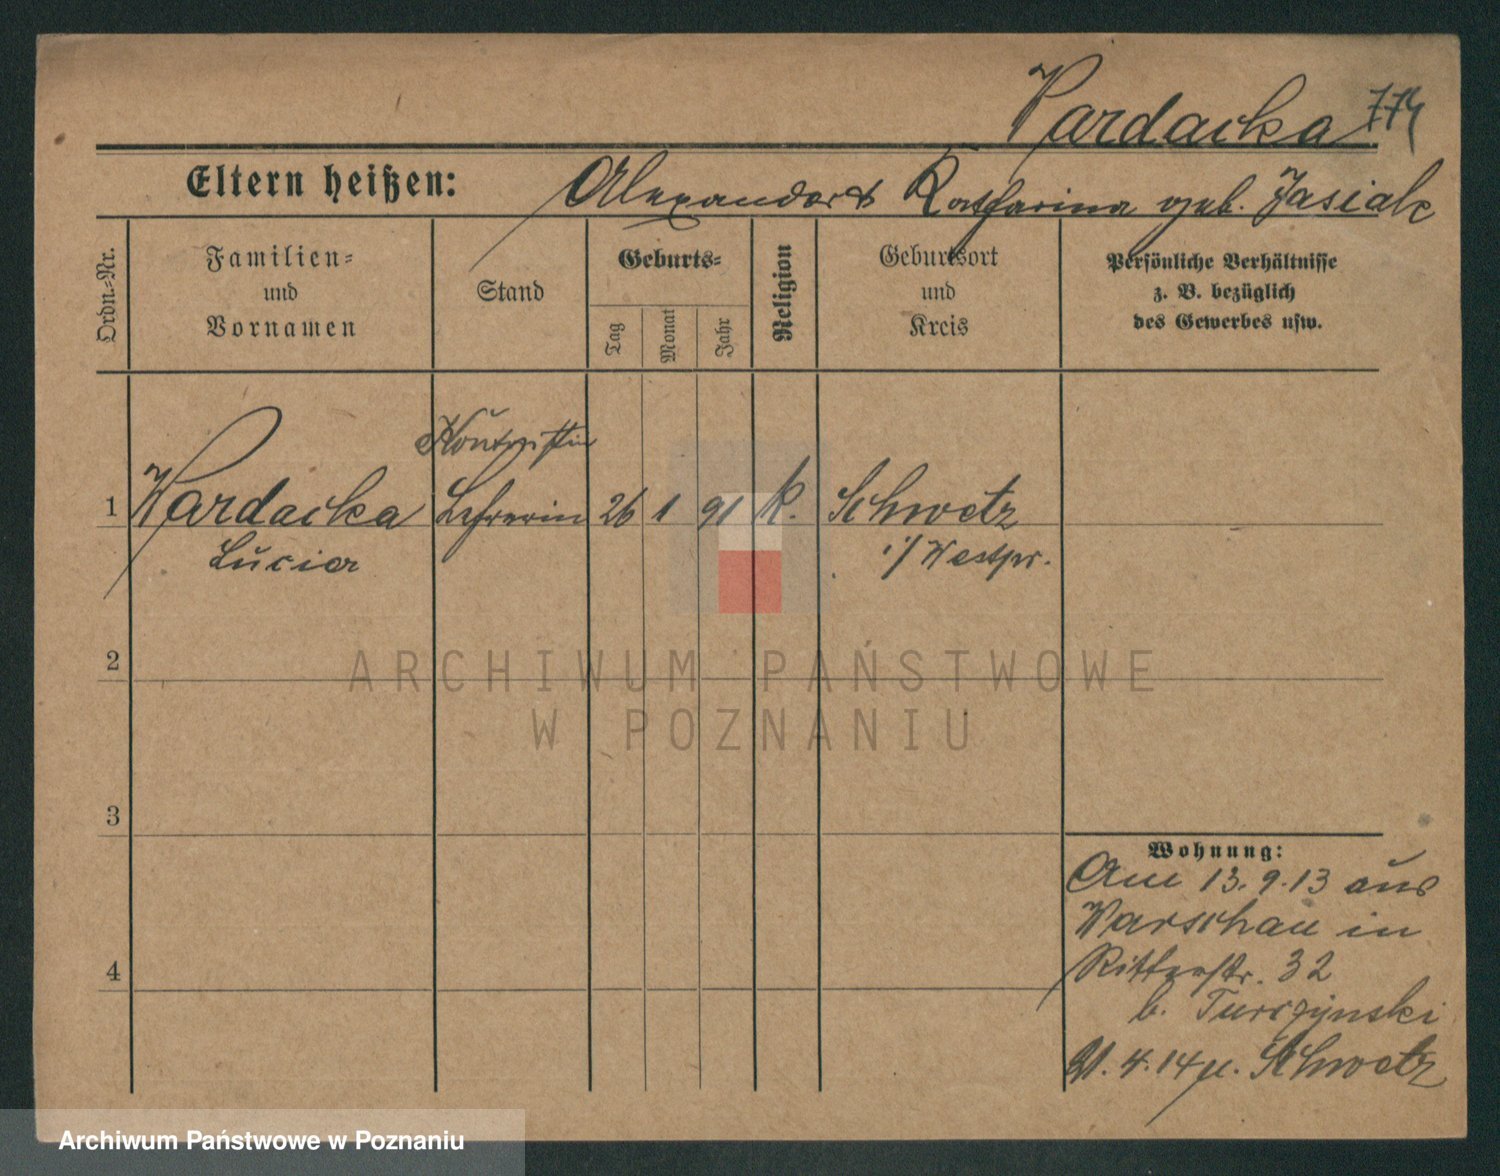 Wardacka 774
Eltern heißen: Alexander & Katharina geb. Jasiak
Ordn.-Nr.
Familien=
und
Vornamen
Stand
Geburts=
Tag
Monat
Jahr
Religion
Geburtsort
und
Kreis
Persönliche Verhältnisse
z. B. bezüglich
des Gewerbes usw.
1 Wardacka Lehrerin 26 1 91 k. Schwetz
Lucia i/ Westpr.
2
3
4
Wohnung:
Am 13.9.13 aus
Warschau in
Ritterstr. 32
b. Turczynski
21.4.14 n. Schwetz
ARCHIWUM PAŃSTWOWE
W POZNANIU
Archiwum Państwowe w Poznaniu